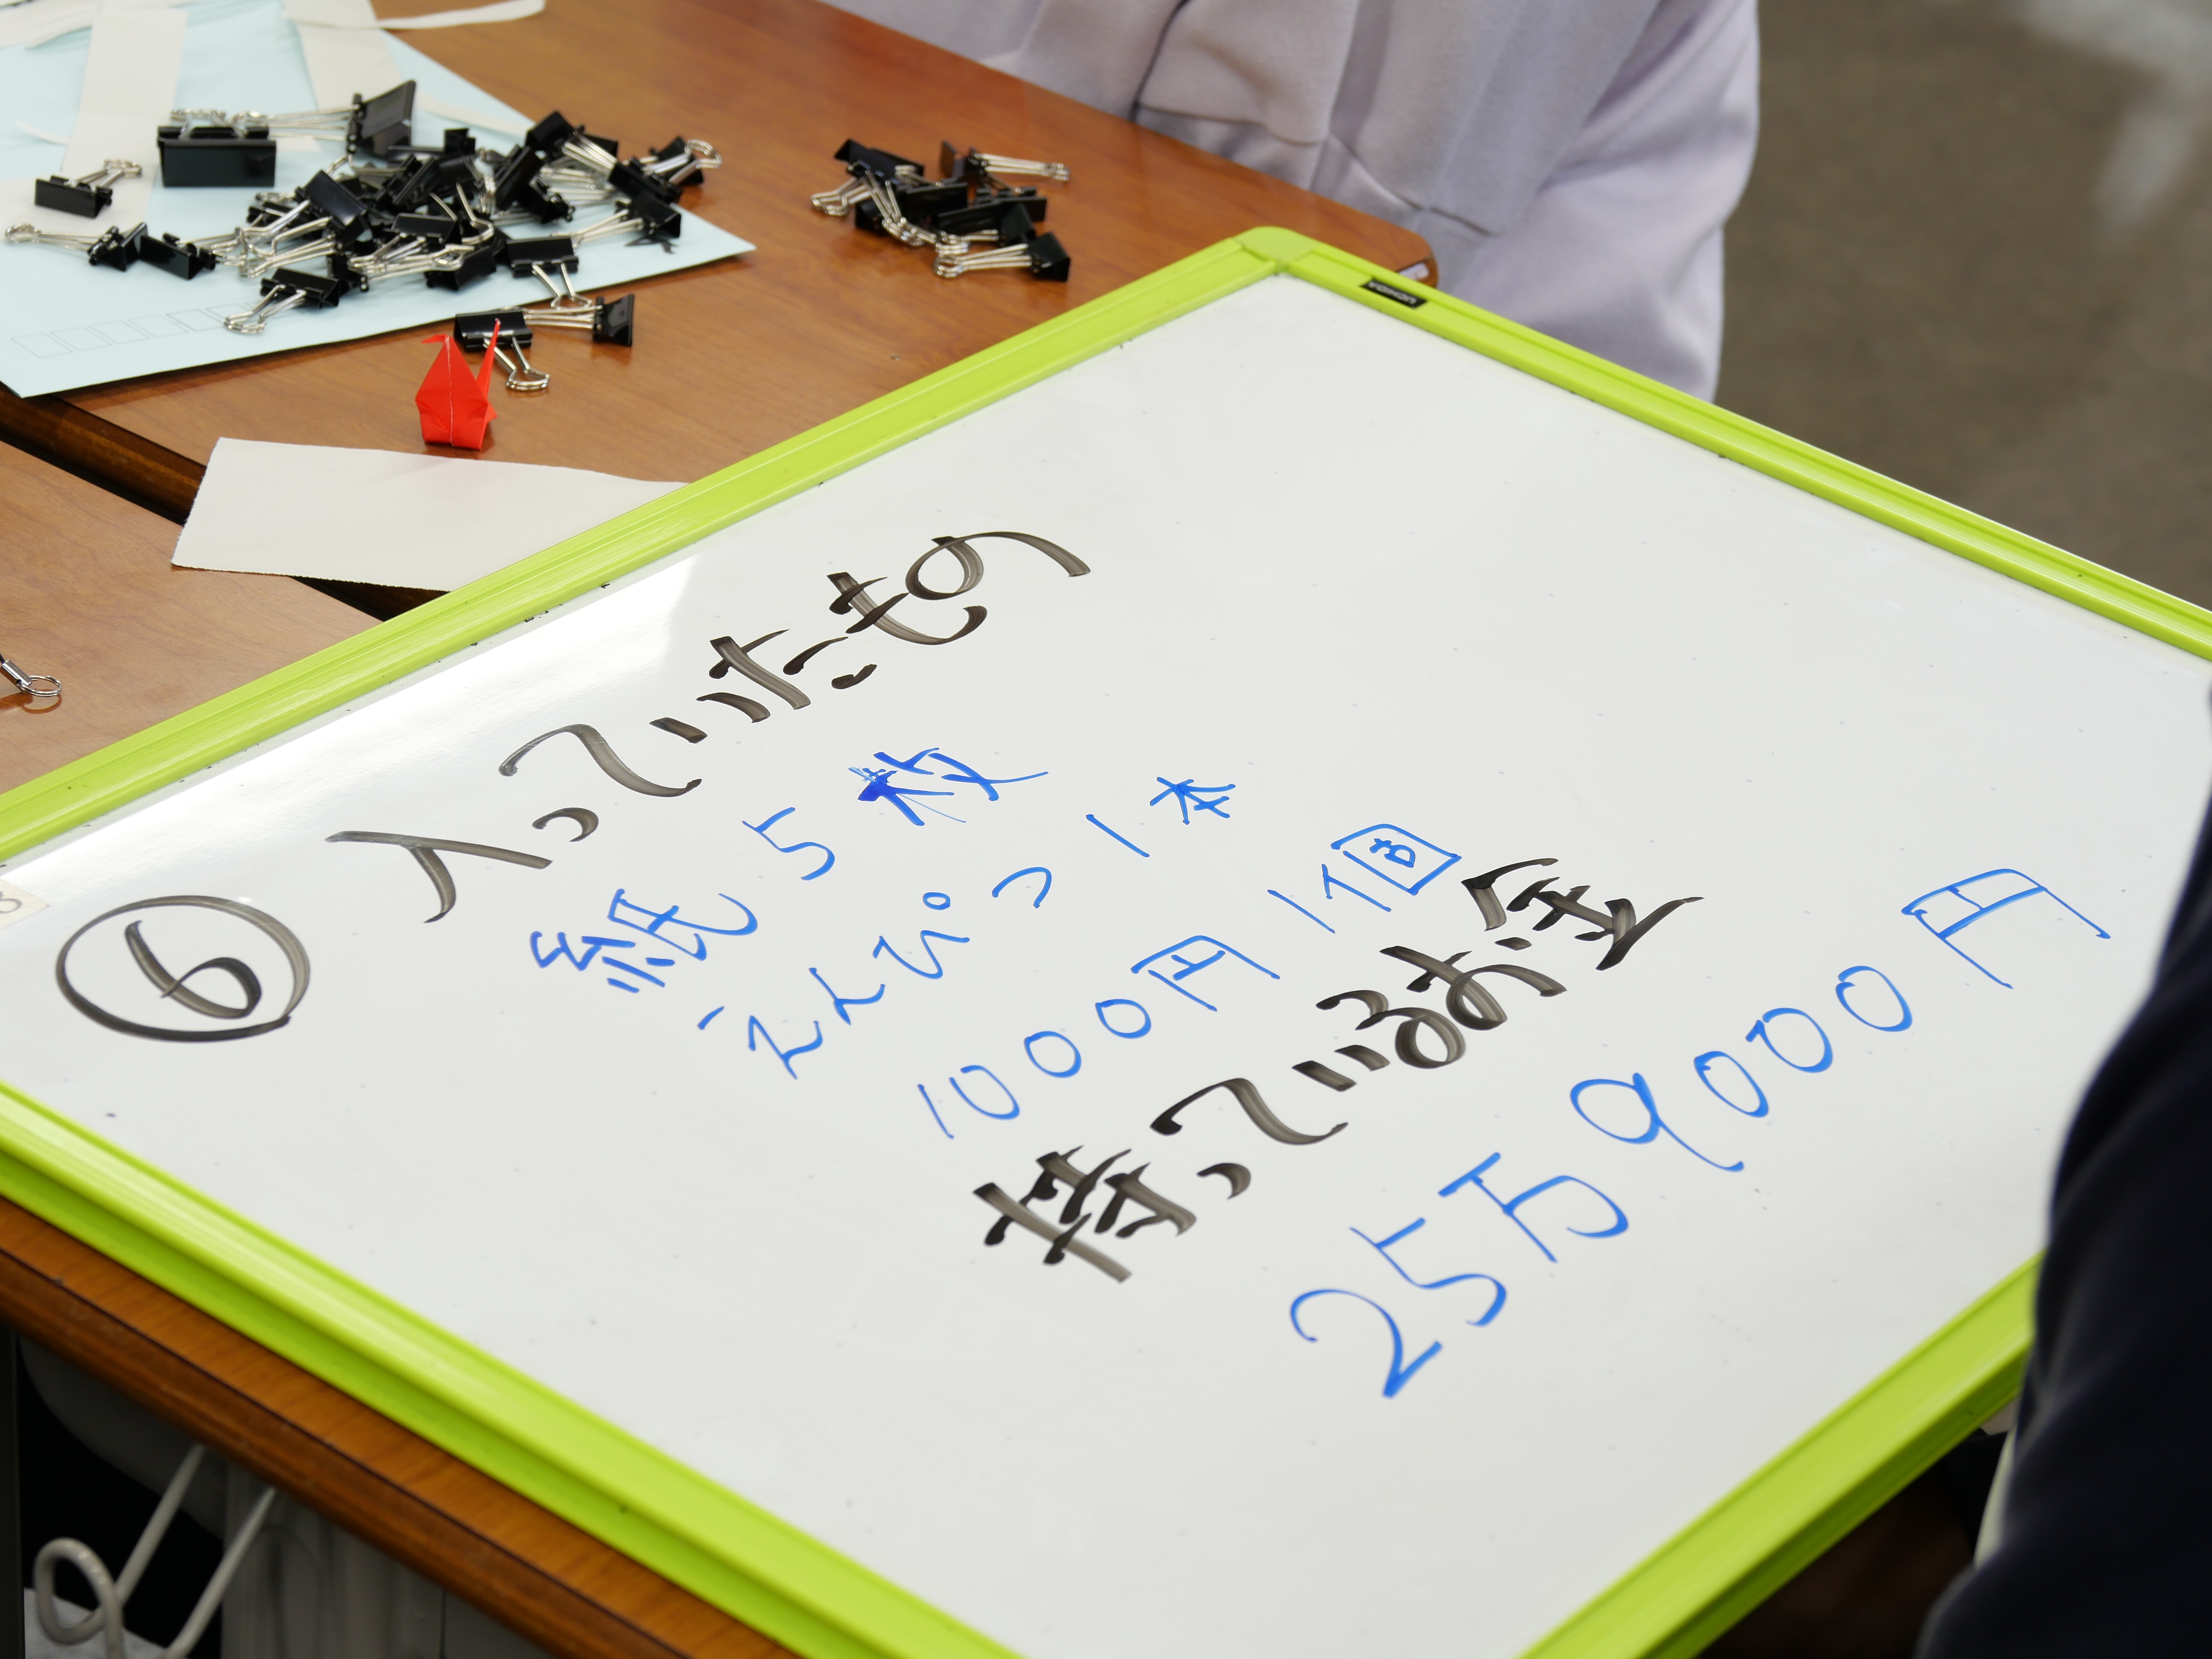 ⑥
入っていたもの
紙 5枚
えんぴつ 1本
1000円 1個
持っているお金
25万9000円